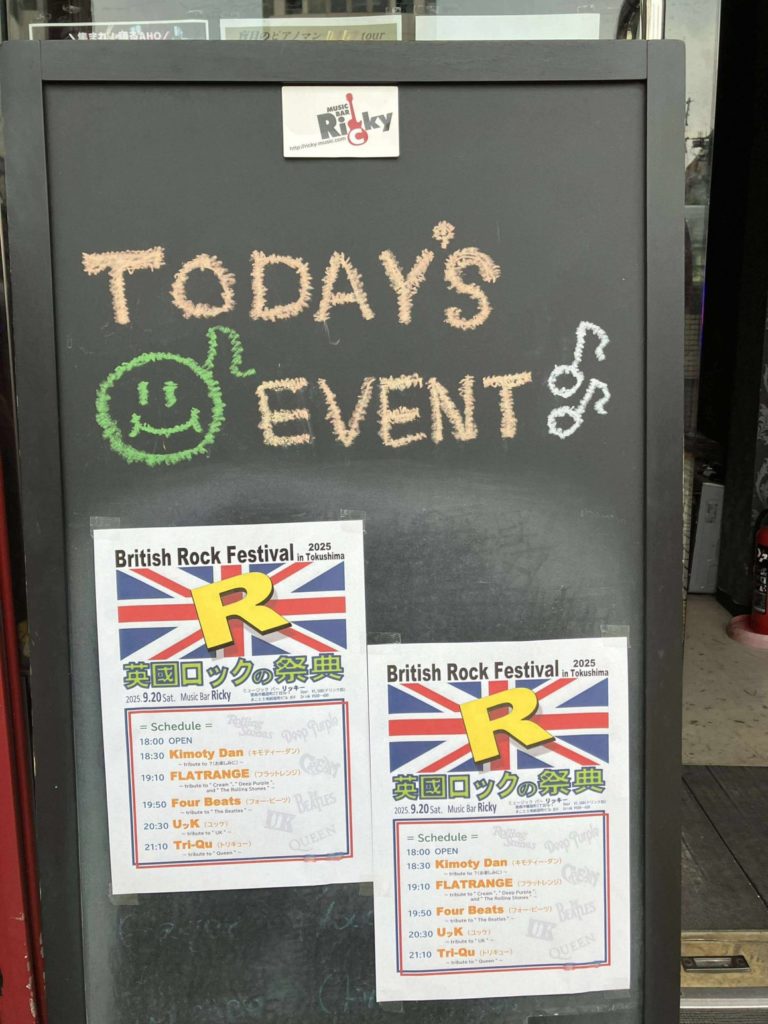 盲目のピアノマン
tour
MUSIC
BAR
Ricky
http://ricky-music.com
TODAY'S
EVENT
British Rock Festival 2025
in Tokushima
R
英國ロックの祭典
2025. 9.20 Sat. Music Bar Ricky
ミュージック バー リッキー
= Schedule =
18:00 OPEN
18:30 Kimoty Dan (キモティー・ダン)
19:10 FLATRANGE (フラットレンジ)
~ tribute to " Cream ", " Deep Purple ",
and " The Rolling Stones " ~
19:50 Four Beats (フォー・ビーツ)
~ tribute to " The Beatles " ~
20:30 UッK (ユッケ)
~ tribute to " UK " ~
21:10 Tri-Qu (トリキュー)
~ tribute to " Queen " ~
Rolling Stones
Deep Purple
CREAM
BEATLES
UK
QUEEN
British Rock Festival 2025
in Tokushima
R
英國ロックの祭典
2025. 9.20 Sat. Music Bar Ricky
ミュージック バー リッキー
= Schedule =
18:00 OPEN
18:30 Kimoty Dan (キモティー・ダン)
19:10 FLATRANGE (フラットレンジ)
~ tribute to " Cream ", " Deep Purple ",
and " The Rolling Stones " ~
19:50 Four Beats (フォー・ビーツ)
~ tribute to " The Beatles " ~
20:30 UッK (ユッケ)
~ tribute to " UK " ~
21:10 Tri-Qu (トリキュー)
~ tribute to " Queen " ~
Rolling Stones
Deep Purple
CREAM
BEATLES
UK
QUEEN